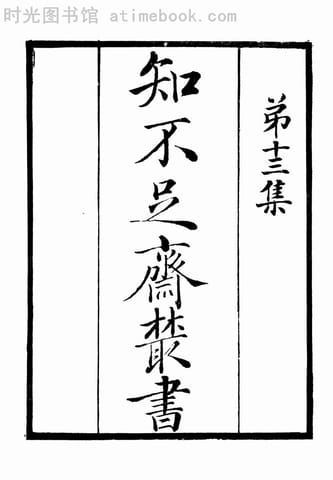 时光图书馆 - atimebook.com
第十三集
知不足齋叢書